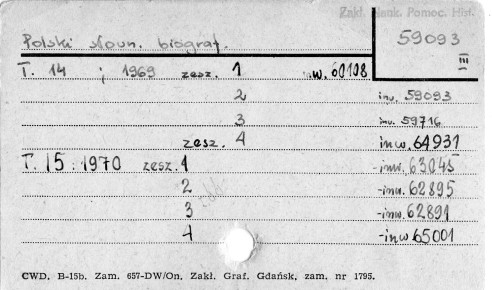 Zakł. Nauk. Pomoc. Hist.
Polski słown. biograf. 59093
III
T. 14 ; 1969 zesz. 1 inw. 60108
2 inw. 59093
3 inw. 59716
zesz. 4 inw. 64931
T. 15 : 1970 zesz. 1 -inw. 63045
2 -inw. 62895
3 -inw. 62891
4 -inw 65001
CWD. B-15b. Zam. 657-DW/On. Zakł. Graf. Gdańsk, zam. nr 1795.